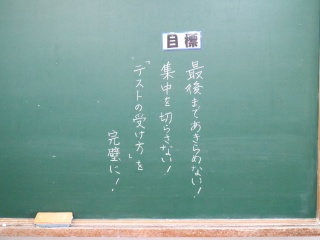 目標
最後まであきらめない！
集中を切らさない！
「テストの受け方」を
完璧に！